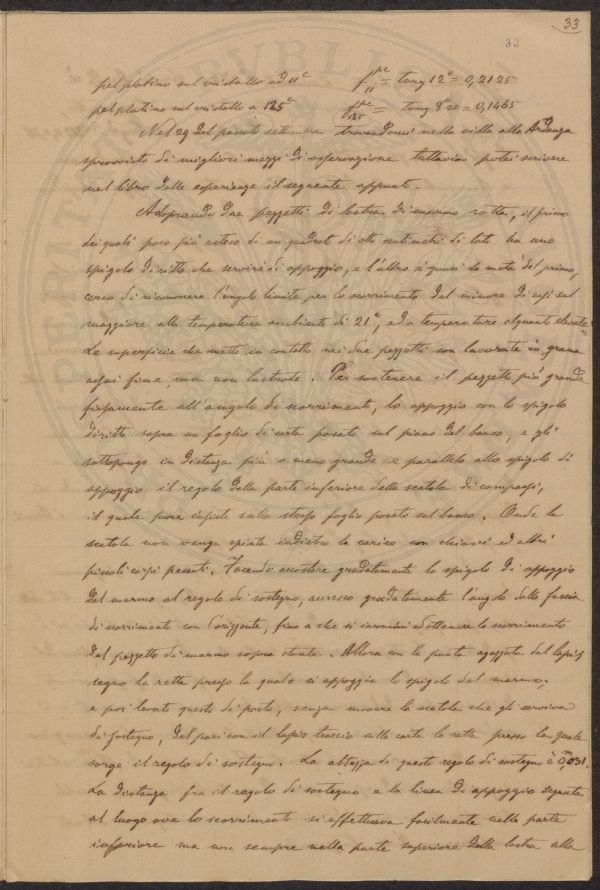 33
33
pel platino sul cristallo ad 11° f = tang 12° = 0,2125
pel platino sul cristallo a 125° f = tang 8° 20 = 0,1465
Nel 29 del passato settembre trovandomi nella villa alla Ardenza
sprovvisto di migliori mezzi di osservazione tuttavia potei scrivere
nel libro delle esperienze il seguente appunto.
Adoprando due pezzetti di lastra di marmo rotta, il primo
dei quali poco più esteso di un quadrato di otto centimetri di lato ha uno
spigolo diritto che servirà di appoggio, e l'altro è quasi la metà del primo,
cerco di riconoscere l'angolo limite per lo scorrimento del minore di essi sul
maggiore alla temperatura ambiente di 21°, ed a temperature alquanto elevate.
Le superficie che metto in contatto nei due pezzetti son lavorate in grana
assai fine, ma non lustrate. Per sostenere il pezzetto più grande
fissamente all'angolo di scorrimento, lo appoggio con lo spigolo
diritto sopra un foglio di carta posato sul piano del banco, e gli
sottopongo in distanza più o meno grande e parallelo allo spigolo di
appoggio il regolo della parte inferiore della scatola di compassi,
il quale posa sullo stesso foglio posato sul banco. Onde la
scatola non venga spinta indietro la carico con chiavi ed altri
piccoli corpi pesanti. Facendo accostare gradatamente lo spigolo di appoggio
del marmo al regolo di sostegno, accresco gradatamente l'angolo della faccia
di scorrimento con l'orizzonte, fino a che si incominci ad ottenere lo scorrimento
del pezzetto di marmo sopra stante. Allora con la punta aguzzata del lapis
segno la retta presso la quale si appoggia lo spigolo del marmo,
e poi levato questo di posto, senza muovere la scatola che gli serviva
di sostegno, del pari con il lapis traccio sulla carta la retta presso la quale
sorge il regolo di sostegno. La altezza di questo regolo di sostegno è 0,031.
La distanza fra il regolo di sostegno e la linea di appoggio segnata
al luogo ove lo scorrimento si effettuava facilmente nella parte
inferiore ma non sempre nella parte superiore della lastra alla